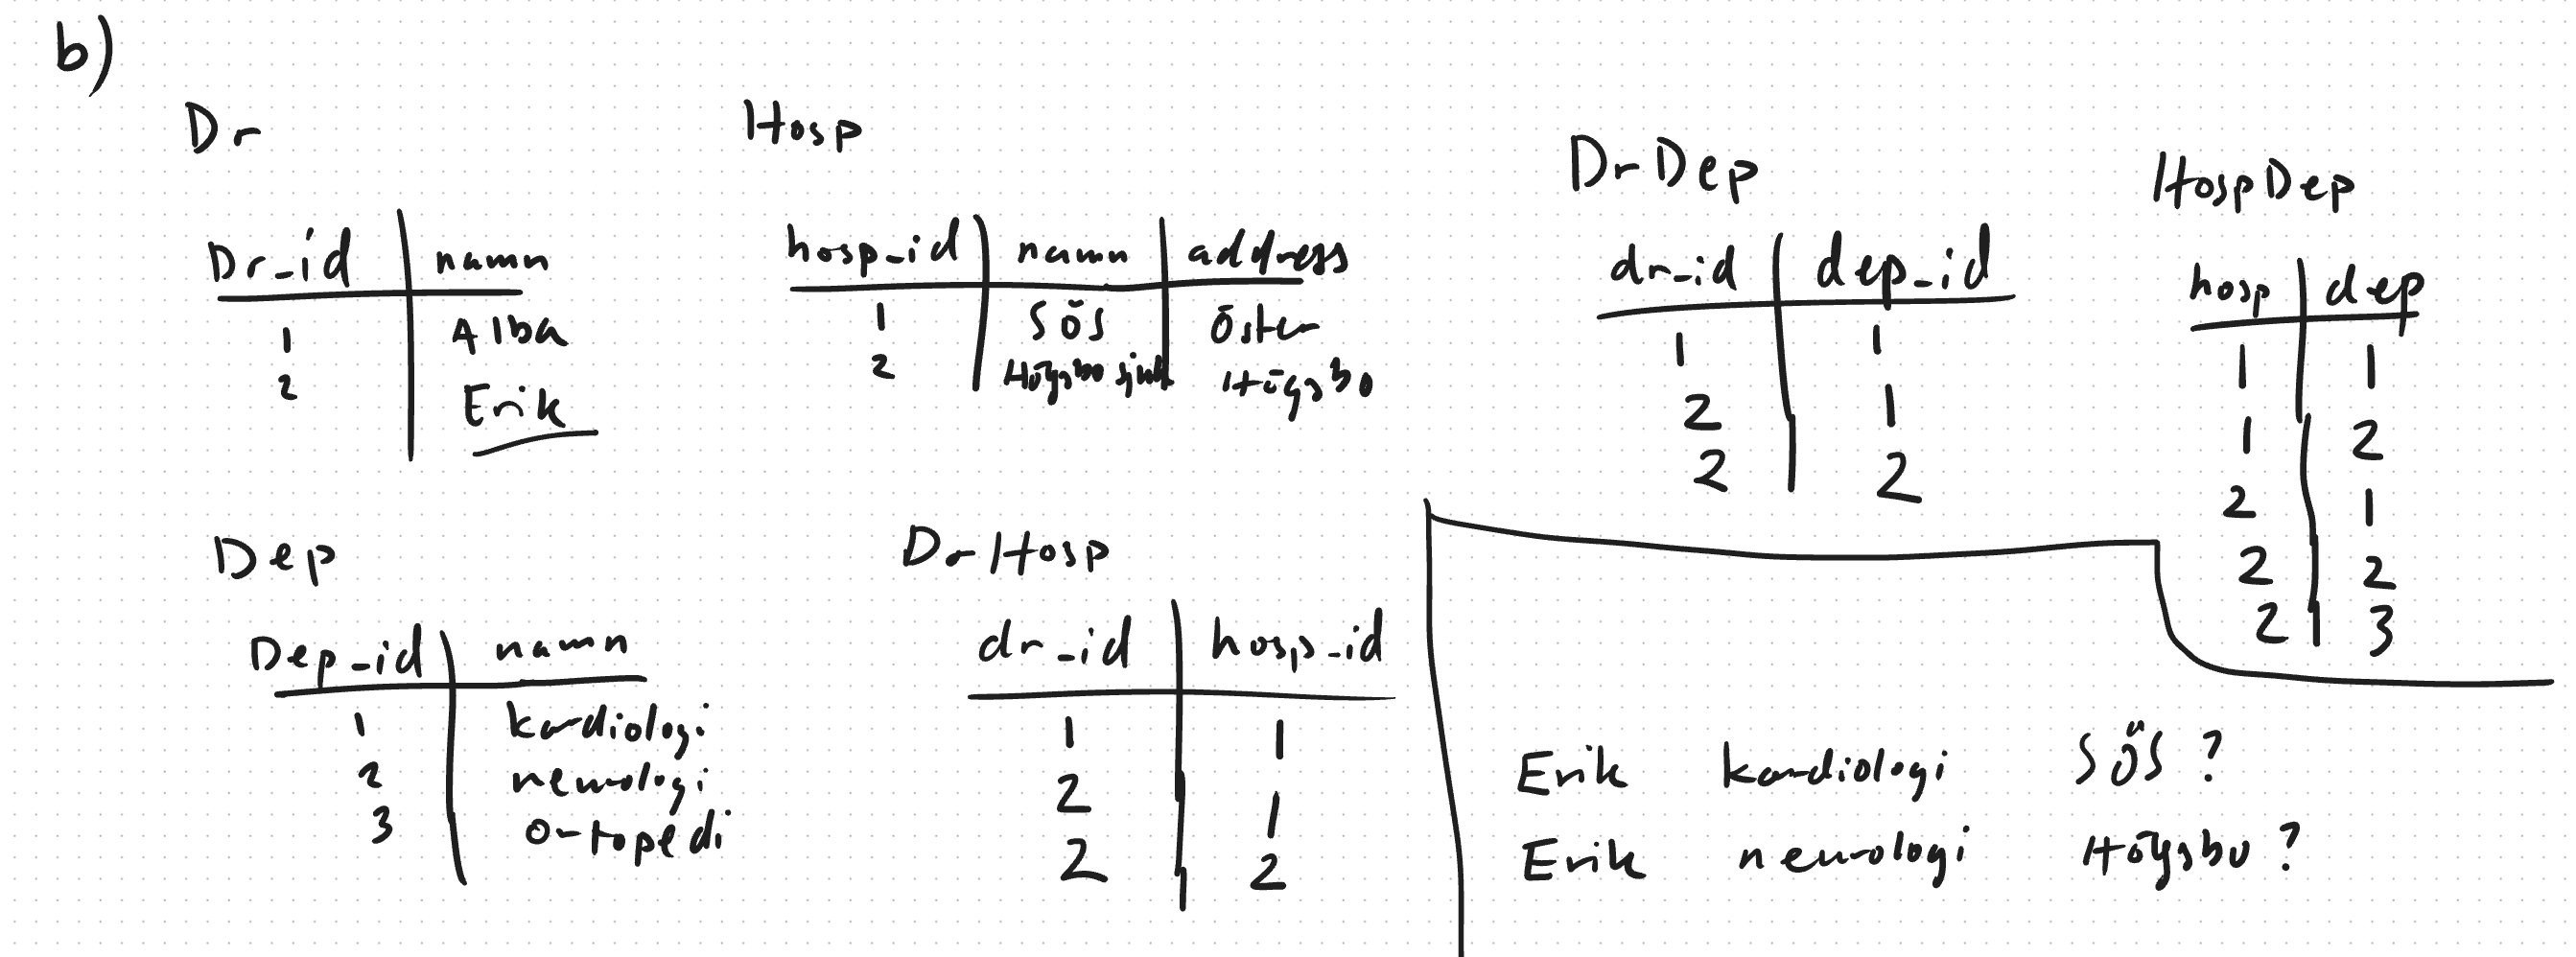 b)
Dr
Dr_id namn
1 Alba
2 Erik
Hosp
hosp_id namn address
1 SÖS Öster
2 Högsbo sjuk Högsbo
DrDep
dr_id dep_id
1 1
2 1
2 2
HospDep
hosp dep
1 1
1 2
2 1
2 2
2 3
Dep
Dep_id namn
1 kardiologi
2 neurologi
3 ortopedi
DrHosp
dr_id hosp_id
1 1
2 1
2 2
Erik kardiologi SÖS ?
Erik neurologi Högsbo ?